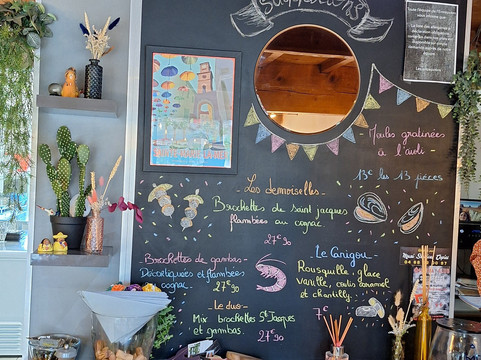 Suggestions
Moules gratinées
à l'aïoli
13€ les 13 pièces
Les demoiselles
Brochettes de saint jacques
flambées au cognac
27€90
Brochettes de gambas
Décortiquées et flambées
cognac
27€90
Le duo
Mix brochettes St Jacques
et gambas
27€90
Le Canigou
Rousquille, glace
vanille, coulis caramel
et chantilly
7€